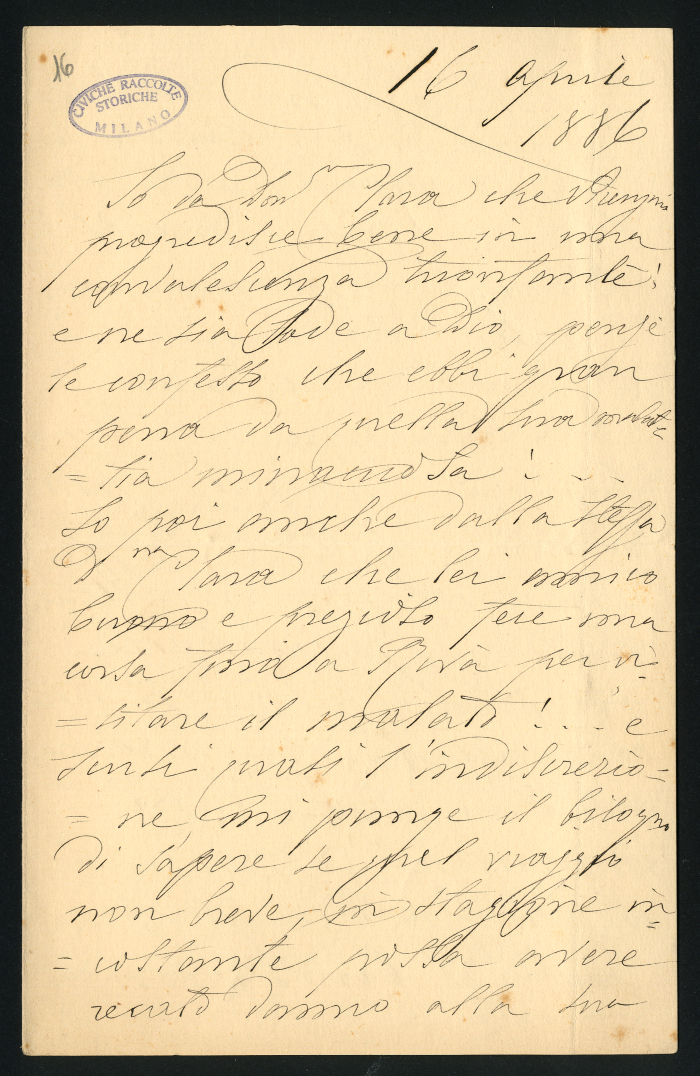 16
CIVICHE RACCOLTE
STORICHE
MILANO
16 aprile
1886
So da Donna Clara che
progredisce bene in una
convalescenza trionfante!
e ne sia lode a Dio, perchè
le confesso che ebbi gran
pena da quella sua malat=
=tia minacciosa! . . .
So poi anche dalla stessa
Dna Clara che lei amico
buono e prezioso fece una
corsa fino a Riva per vi=
=sitare il malato! . . . e
scusi quasi l'indiscrezio=
=ne, mi punge il bisogno
di sapere se quel viaggio
non breve, in stagione in=
=costante possa avere
recato danno alla sua